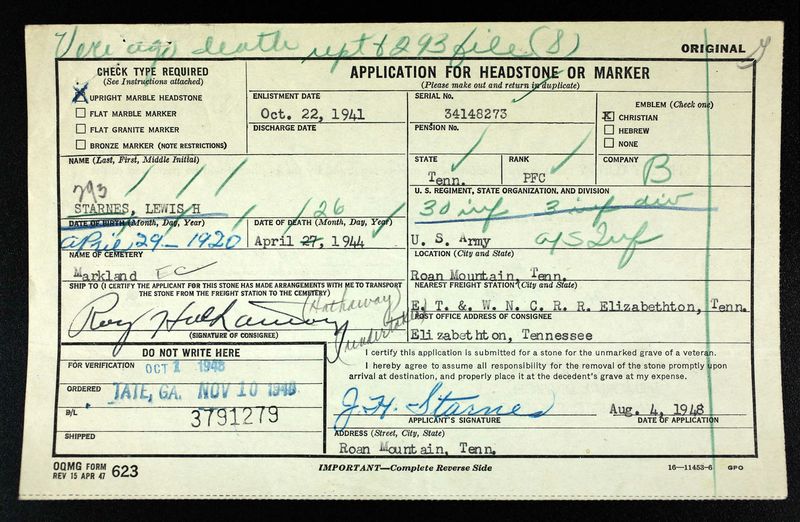 Veri ago death rept & 293 file (8)
ORIGINAL
CHECK TYPE REQUIRED
(See Instructions attached)
X UPRIGHT MARBLE HEADSTONE
FLAT MARBLE MARKER
FLAT GRANITE MARKER
BRONZE MARKER (NOTE RESTRICTIONS)
APPLICATION FOR HEADSTONE OR MARKER
(Please make out and return in duplicate)
ENLISTMENT DATE
Oct. 22, 1941
DISCHARGE DATE
SERIAL No.
34148273
PENSION No.
EMBLEM (Check one)
X CHRISTIAN
HEBREW
NONE
NAME (Last, First, Middle Initial)
293
STARNES, LEWIS H
STATE
Tenn.
RANK
PFC
COMPANY
B
U. S. REGIMENT, STATE ORGANIZATION, AND DIVISION
30 inf 3 inf div
U. S. Army
DATE OF BIRTH (Month, Day, Year)
April 29- 1920
DATE OF DEATH (Month, Day, Year)
26
April 27, 1944
NAME OF CEMETERY
Markland EC
LOCATION (City and State)
Roan Mountain, Tenn.
SHIP TO (I CERTIFY THE APPLICANT FOR THIS STONE HAS MADE ARRANGEMENTS WITH ME TO TRANSPORT
THE STONE FROM THE FREIGHT STATION TO THE CEMETERY)
Roy Hathaway
(Hathaway)
(undertaker
(SIGNATURE OF CONSIGNEE)
NEAREST FREIGHT STATION (City and State)
E. T. & W. N. C. R. R. Elizabethton, Tenn.
POST OFFICE ADDRESS OF CONSIGNEE
Elizabethton, Tennessee
DO NOT WRITE HERE
FOR VERIFICATION OCT 1 1948
ORDERED TATE, GA. NOV 10 1948
B/L 3791279
SHIPPED
I certify this application is submitted for a stone for the unmarked grave of a veteran.
I hereby agree to assume all responsibility for the removal of the stone promptly upon
arrival at destination, and properly place it at the decedent's grave at my expense.
J. H. Starnes
Aug. 4, 1948
APPLICANT'S SIGNATURE
DATE OF APPLICATION
ADDRESS (Street, City, State)
Roan Mountain, Tenn.
OQMG FORM
REV 15 APR 47 623
IMPORTANT—Complete Reverse Side
16—11453-6 GPO